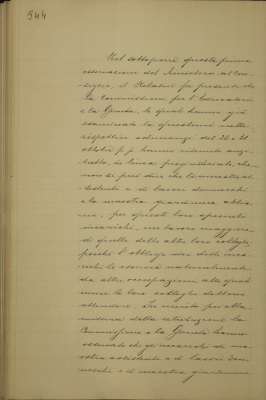 944
Nel sottoporre questa prima
osservazione del Ministero al Con-
siglio, il Relatore fa presente che
la Commissione per l'Educatorio
e la Giunta, le quali hanno già
esaminato la questione nelle
rispettive adunanze del 26 e 31
ottobre p.p. hanno ritenuto anzi-
tutto, in linea pregiudiziale, che
non si può dire che la maestra as-
sistente e di lavori donneschi
e la maestra giardiniera abbia-
no, per questi loro speciali
incarichi, un lavoro maggiore
di quello delle altre loro colleghe,
poiché l'obbligo dei detti inca-
richi le esonera naturalmente
da altre occupazioni alle quali
invece le loro colleghe debbono
attendere. In merito poi alla
misura della retribuzione la
Commissione e la Giunta hanno
osservato che gl'incarichi di ma-
estra assistente e di lavori don-
neschi e di maestra giardiniera